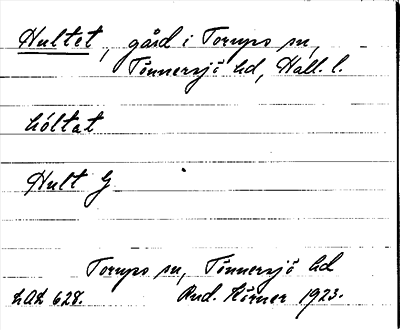 Hultet, gård i Torups sn,
Tönnersjö hd, Hall. l.
hóltat
Hult G
Torups sn, Tönnersjö hd
LAL 628. Rud. Körner 1923.